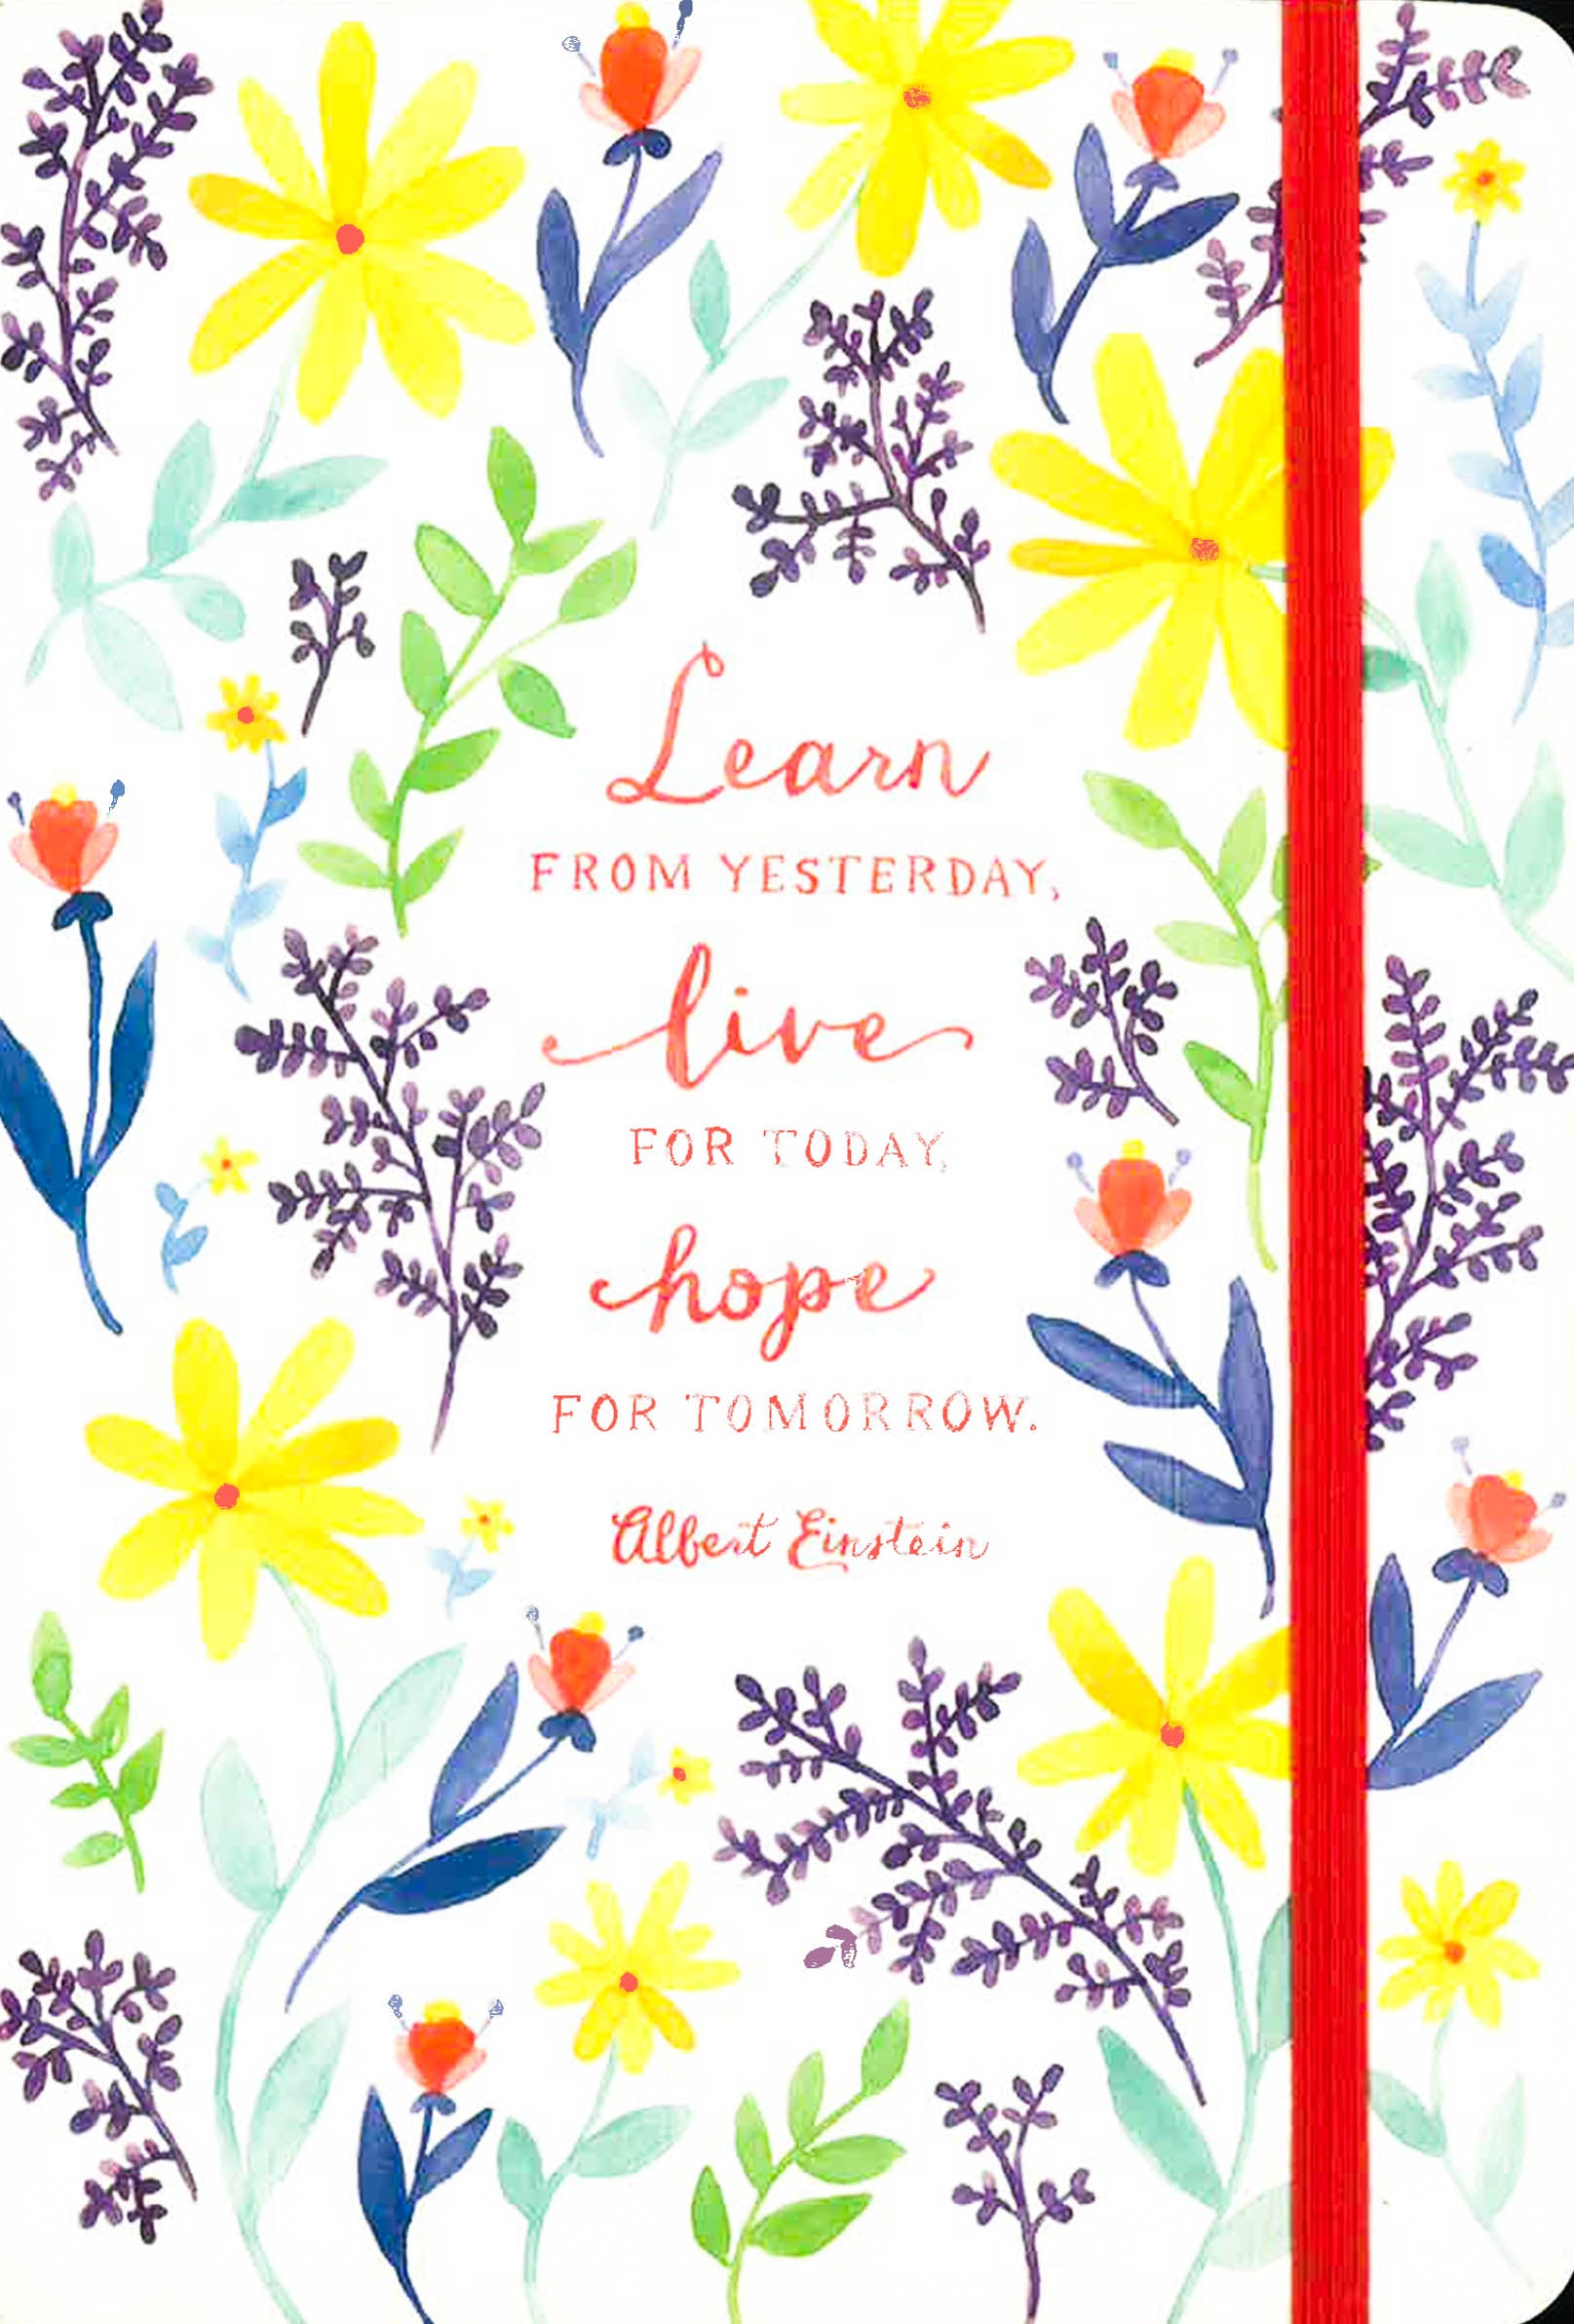 Learn
FROM YESTERDAY,
live
FOR TODAY,
hope
FOR TOMORROW.
Albert Einstein